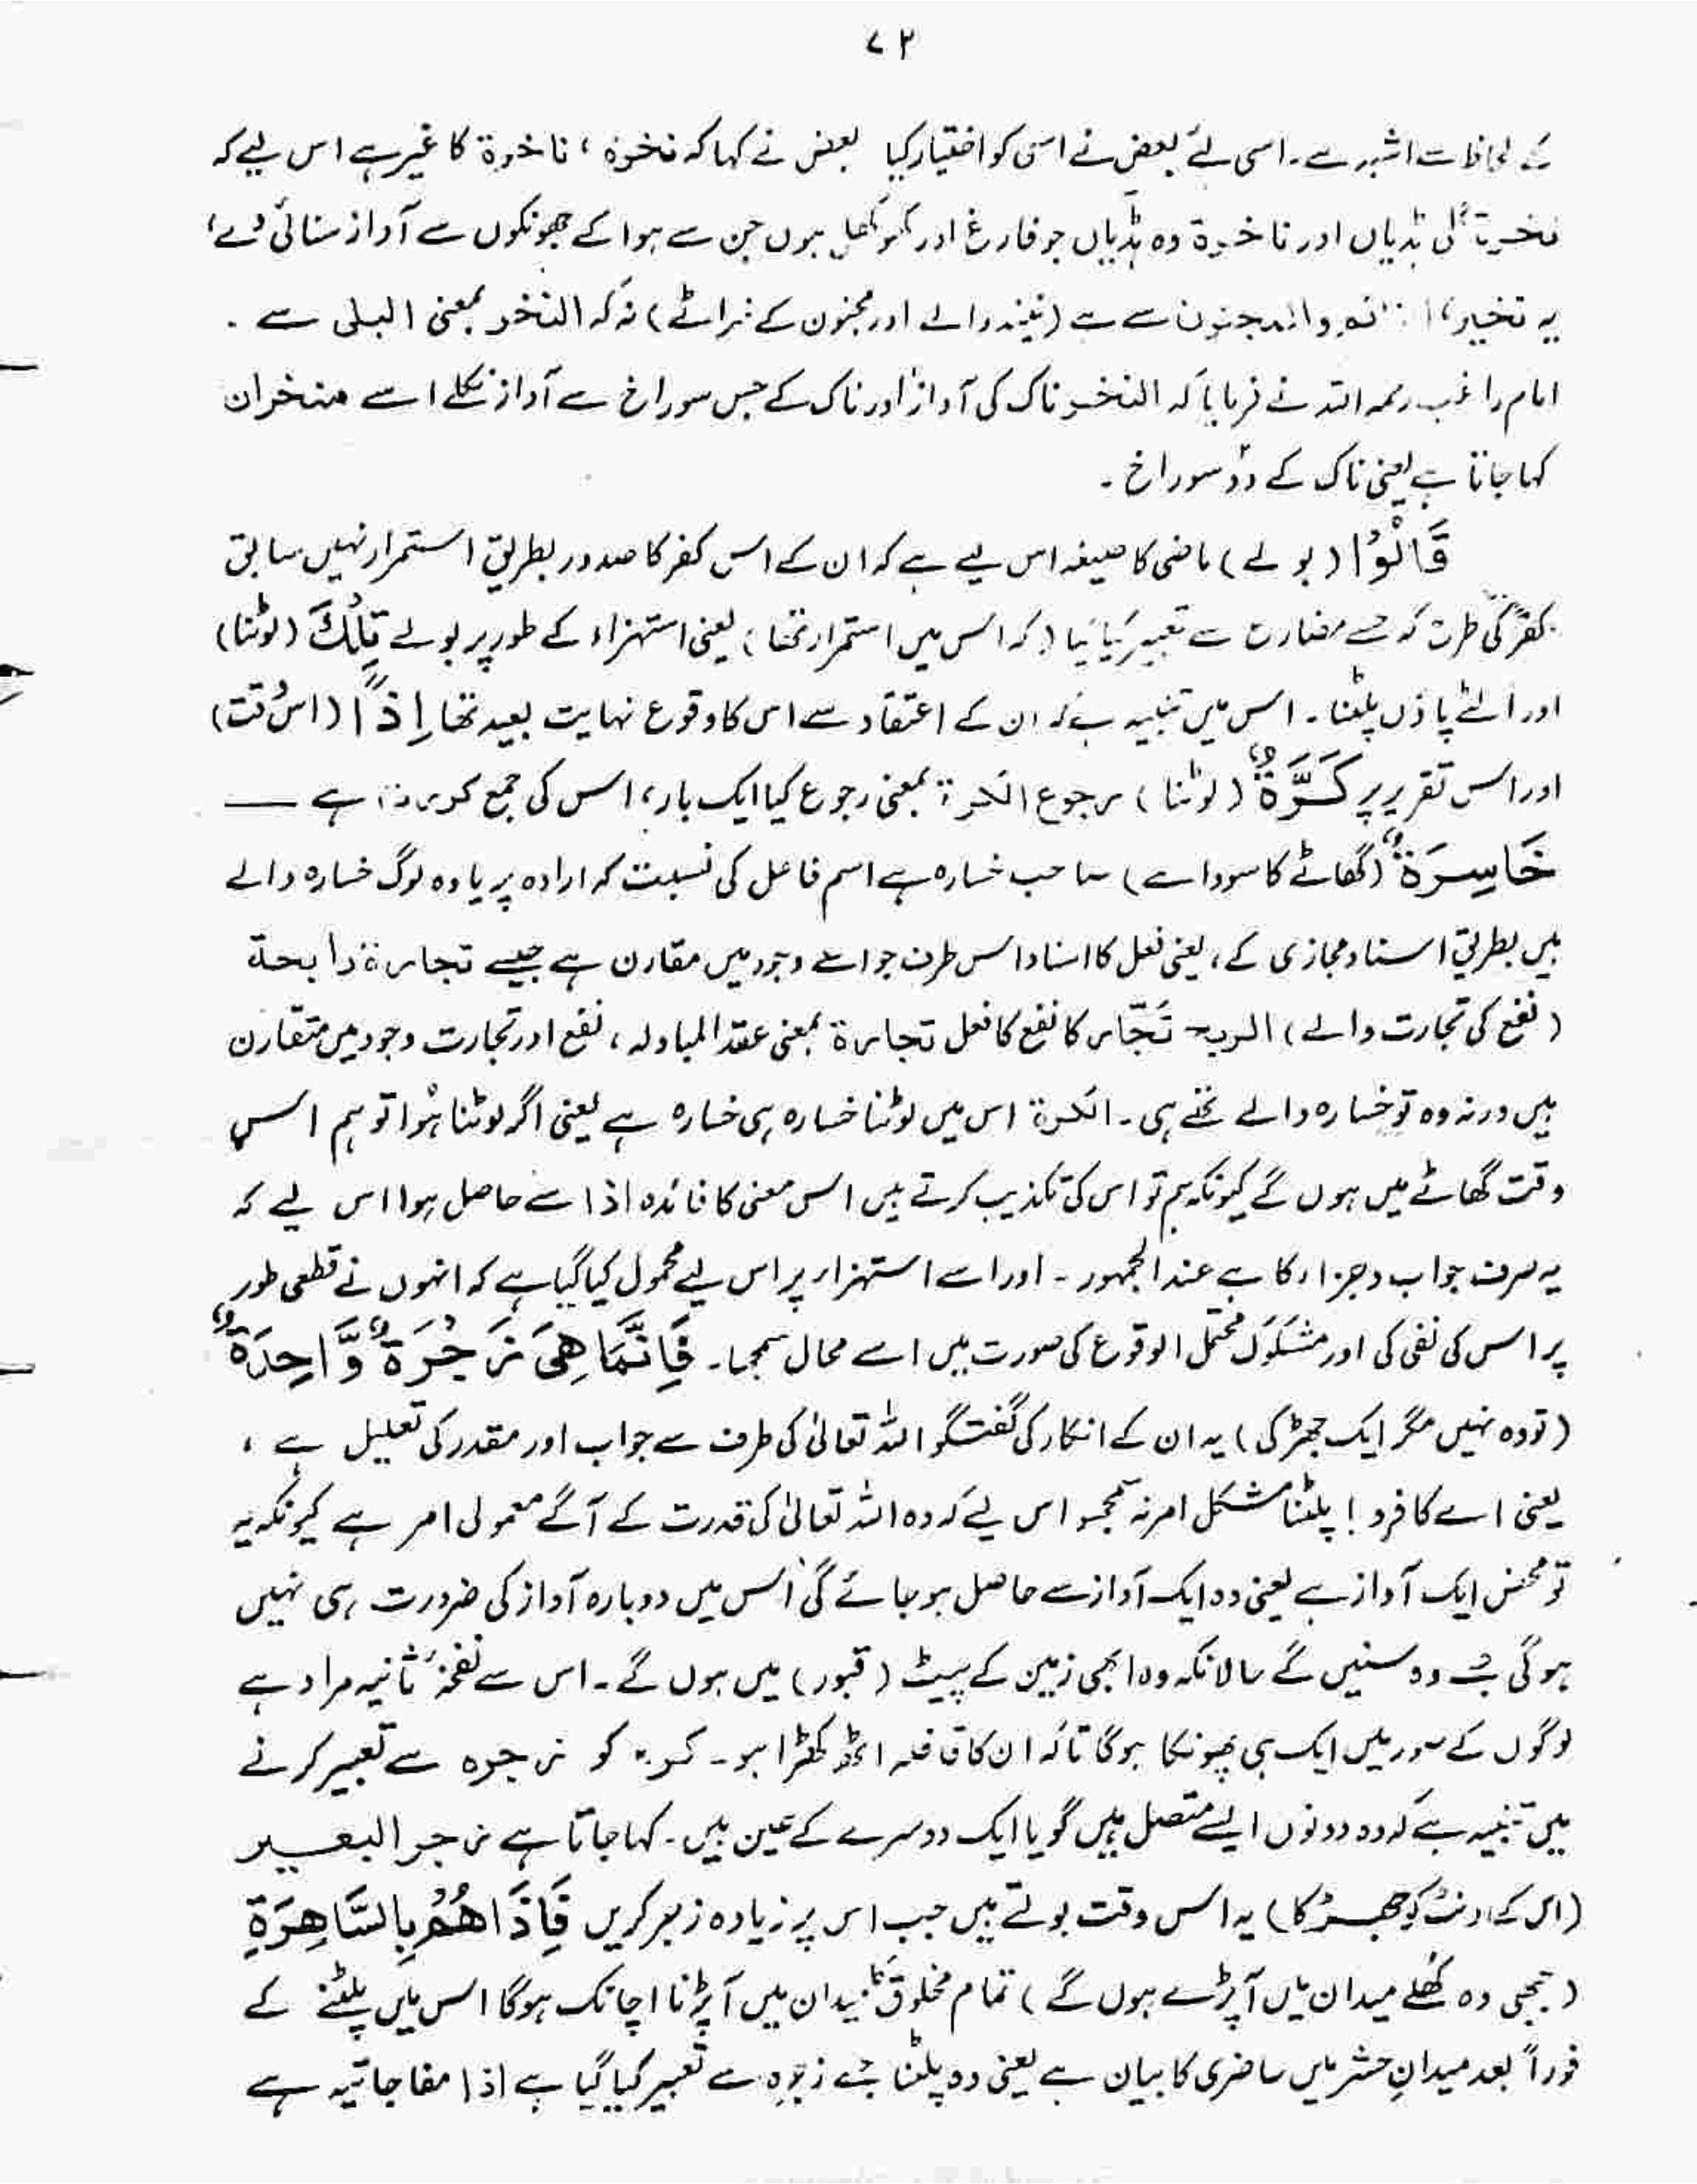 ۷۲
کے لحاظ سے اشہر ہے۔ اسی لئے بعض نے اسی کو اختیار کیا بعض نے کہا کہ نخرة ، ناخرة کا غیر ہے اس لیے کہ
نخرة گلی ہڈیاں اور ناخرة وہ ہڈیاں جو فارغ اور کھوکھلی ہوں جن سے ہوا کے جھونکوں سے آواز سنائی دے ،
یہ نخیر النوم والمجنون سے ہے (نیند والے اور مجنون کے خراٹے) نہ کہ النخر بمعنی البلی سے ۔
امام راغب رحمہ اللہ نے فرمایا کہ النخر ناک کی آواز اور ناک کے جس سوراخ سے آواز نکلے اسے منخران
کہا جاتا ہے یعنی ناک کے دو سوراخ ۔
قَالُوْا (بولے) ماضی کا صیغہ اس لیے ہے کہ ان کے اس کفر کا صدور بطریق استمرار نہیں سابق
کفر کی طرح کہ جسے مضارع سے تعبیر کیا گیا (کہ اس میں استمرار تھا) یعنی استہزاء کے طور پر بولے تِلْكَ (لوٹنا)
اور الٹے پاؤں پلٹنا ۔ اس میں تنبیہ ہے کہ ان کے اعتقاد سے اس کا وقوع نہایت بعید تھا اِذًا (اس وقت)
اور اس تقریر پر كَرَّةٌ (لوٹنا) رجوع الکرة بمعنی رجوع کیا ایک بار ، اس کی جمع کرات ہے ——
خَاسِرَةٌ (گھاٹے کا سودا ہے) صاحب خسارہ ہے اسم فاعل کی نسبت کہ ارادہ پر یا وہ لوگ خسارہ والے
ہیں بطریق اسناد مجازی کے ، یعنی فعل کا اسناد اس طرف جو اسے وجود میں مقارن ہے جیسے تجارة رابحة
(نفع کی تجارت والے) الربح تَجّار کا نفع کا فعل تجارة بمعنی عقد المبادلہ ، نفع اور تجارت وجود میں متقارن
ہیں ورنہ وہ تو خسارہ والے تھے ہی ۔ الکرة اس میں لوٹنا خسارہ ہی خسارہ ہے یعنی اگر لوٹنا ہُوا تو ہم اس
وقت گھاٹے میں ہوں گے کیونکہ ہم تو اس کی تکذیب کرتے ہیں اس معنی کا فائدہ اذا سے حاصل ہوا اس لیے کہ
یہ صرف جواب و جزاء کا ہے عند الجمہور ۔ اور اسے استہزاء پر اس لیے محمول کیا گیا ہے کہ انہوں نے قطعی طور
پر اس کی نفی کی اور مشکوک محتمل الوقوع کی صورت میں اسے محال سمجھا ۔ فَاِنَّمَا هِيَ زَجْرَةٌ وَّاحِدَةٌ
(تو وہ نہیں مگر ایک جھڑکی) یہ ان کے انکار کی گفتگو اللہ تعالیٰ کی طرف سے جواب اور مقدر کی تعلیل ہے ،
یعنی اے کافرو ! پلٹنا مشکل امر نہ سمجھو اس لیے کہ وہ اللہ تعالیٰ کی قدرت کے آگے معمولی امر ہے کیونکہ یہ
تو محض ایک آواز ہے یعنی وہ ایک آواز سے حاصل ہو جائے گی اس میں دوبارہ آواز کی ضرورت ہی نہیں
ہوگی جسے وہ سنیں گے حالانکہ وہ ابھی زمین کے پیٹ (قبور) میں ہوں گے ۔ اس سے نفخۂ ثانیہ مراد ہے
لوگوں کے صور میں ایک ہی پھونکا ہوگا تاکہ ان کا قافلہ اٹھ کھڑا ہو ۔ کرہ کو زجرہ سے تعبیر کرنے
میں تنبیہ ہے کہ وہ دونوں ایسے متصل ہیں گویا ایک دوسرے کے عین ہیں ۔ کہا جاتا ہے زجر البعیر
(اس کے اونٹ کو جھڑکا) یہ اس وقت بولتے ہیں جب اس پر زیادہ زجر کریں فَاِذَا هُمْ بِالسَّاهِرَةِ
(جبھی وہ کُھلے میدان میں آپڑے ہوں گے) تمام مخلوق کا میدان میں آپڑنا اچانک ہوگا اس میں پلٹنے کے
فوراً بعد میدانِ حشر میں حاضری کا بیان ہے یعنی وہ پلٹنا جسے زجرہ سے تعبیر کیا گیا ہے اذا مفاجاتیہ ہے